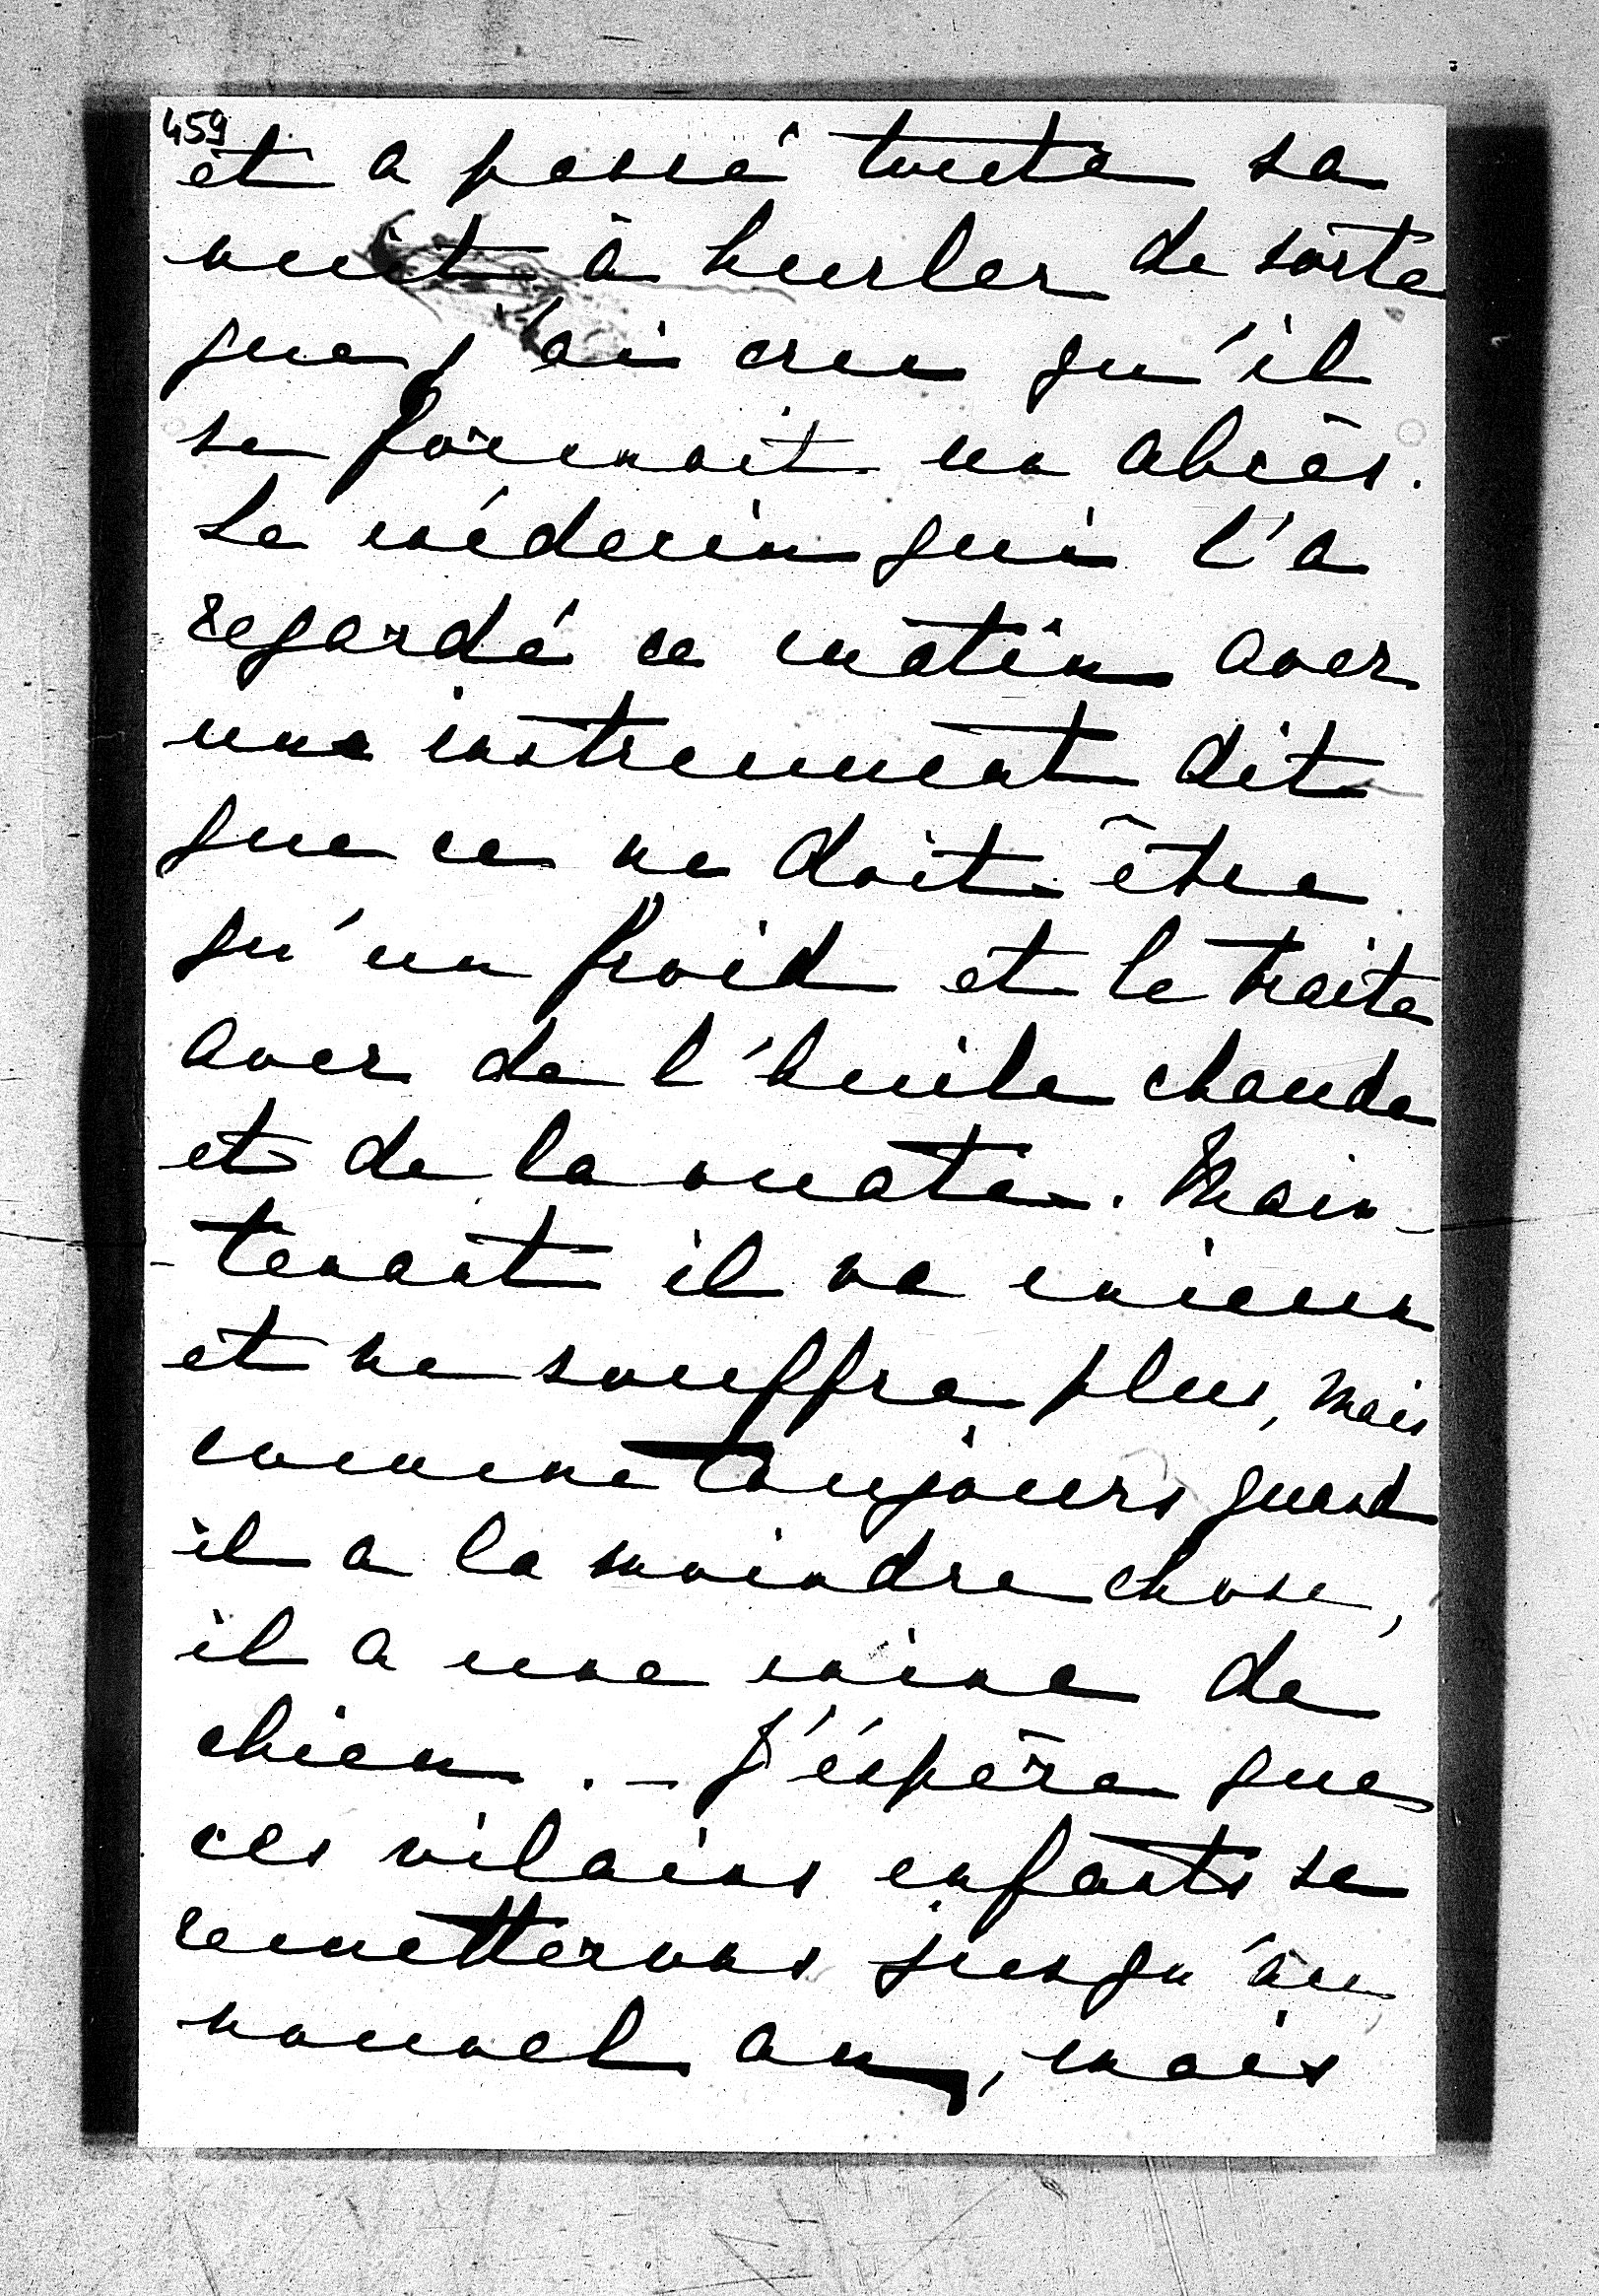 459
et a passé toute sa
nuit à hurler de sorte
que j'ai cru qu'il
se formait un abcès.
Le médecin qui l'a
regardé ce matin avec
une instrument dit
que ce ne doit être
qu'un froid et le traite
avec de l'huile chaude
et de la ouate. Main-
-tenant il va mieux
et ne souffre plus, mais
comme toujours quand
il a la moindre chose,
il a une mine de
chien. – J'éspère que
ces vilains enfants se
remetterons jusqu'au
nouvel an, mais